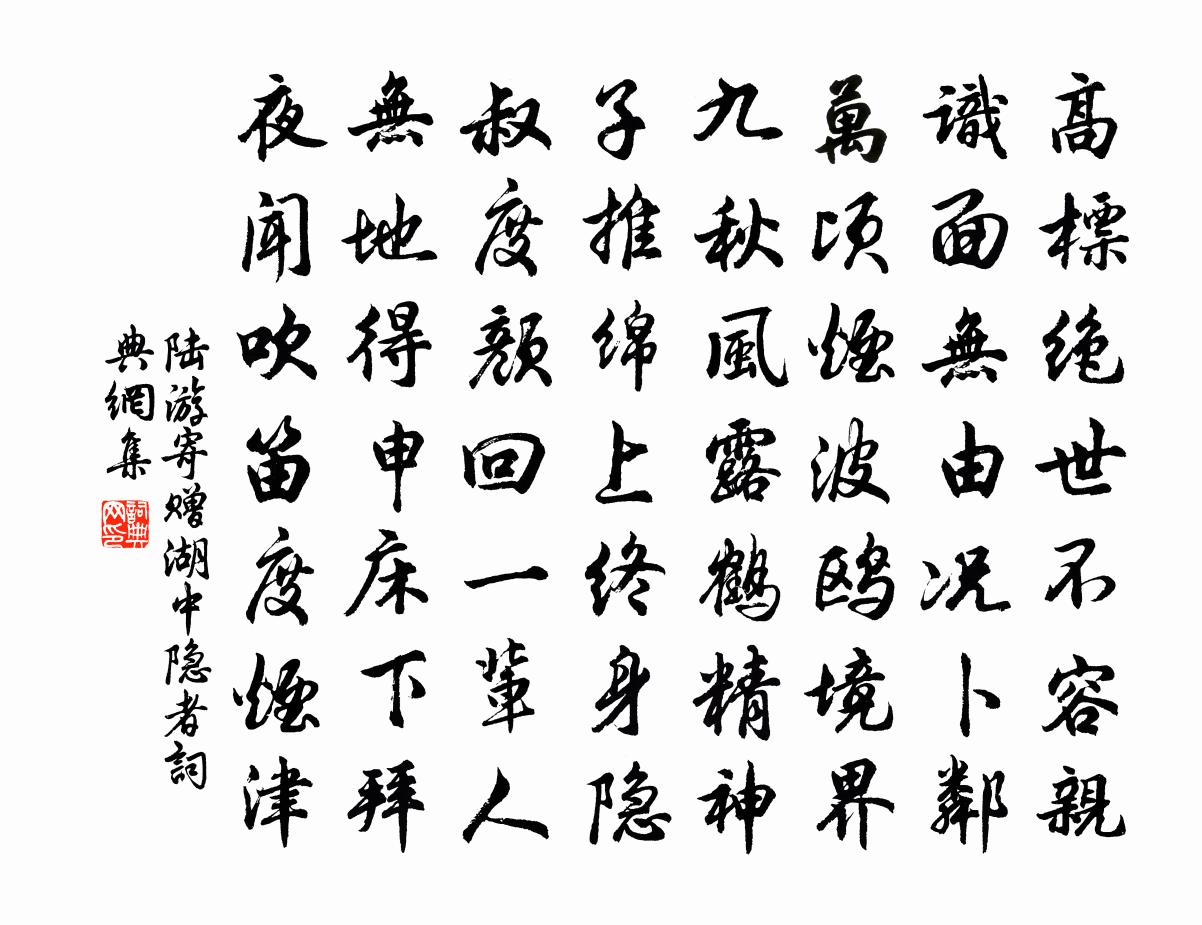 高標絕世不容親
識面無由况卜鄰
萬頃煙波鸥境界
九秋風露鶴精神
子推綿上终身隐
叔度颜回一輩人
無地得申床下拜
夜聞吹笛度煙津
陆游寄赠湖中隐者詞
典網集
詞典
网印